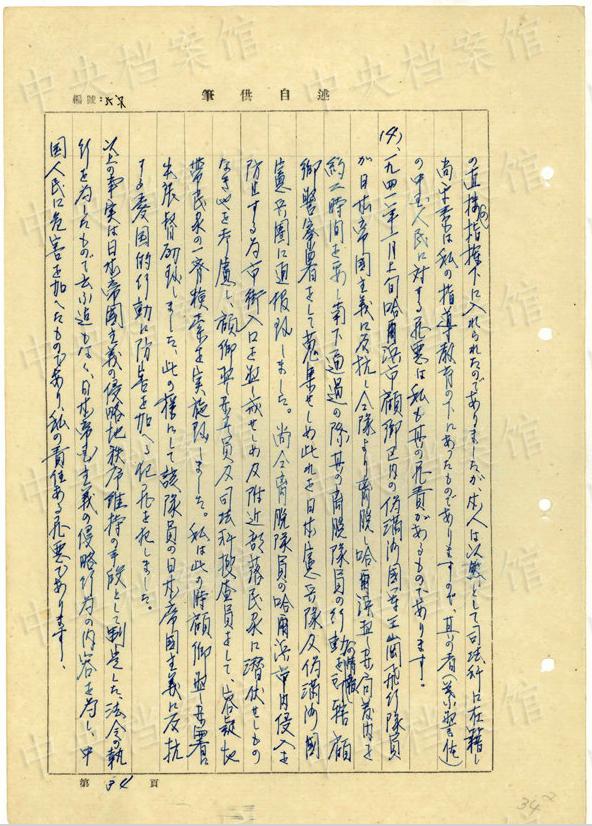 述自供筆
編號:
の直接指揮下に入れられたのでありましたが本人は以然として司法科に在籍し
尚平素は私の指導教育の下にあったものでありますので、其の者(
の中国人民に対する罪悪は私も其の罪責があるものであります!
(4)、一九四一年一月上旬哈爾浜市顧郷区内の偽満洲国軍王崗飛行隊員
が日本帝国主義に反抗し全隊より離脱し哈爾浜
約二時間を要し南下通過の際其の離脱隊員の行動を所轄顧
郷警察署をして蒐集せしめ此れを日本憲兵隊及偽満洲国
憲兵團に通報致しました。尚全離脱隊員の哈爾浜市内侵入を
防止する為市街入口を警戒せしめ及附近部落民家に潜伏せしもの
なきかを考慮し、顧郷警察署員及司法科捜査員をして、容疑地
帯民家の一斉検索を実施致しました。私は此の時顧郷警察署に
出張督励致しました、此の様にして該隊員の日本帝国主義に反抗
する愛国的行動に防害を加へる犯罪を犯しました。
以上の事実は日本帝国主義の侵略地秩序維持の手段として制定した、法令の執
行を為したもので
日本帝国主義の侵略行為の内容を為し、中
国人民に危害を加へたものであり、私の責任ある罪悪であります!
第 34 頁
34
中央档案馆